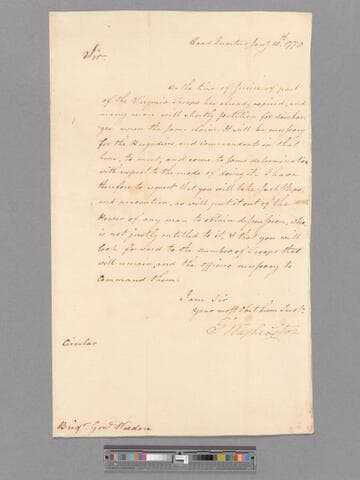 Head Quarters Jany 10th 1778
Sir.
As the time of service of part
of the Virginia Troops has already expired, and
many more will shortly petition for dischar-
ges upon the same claim. It will be necessary
for the Brigadiers and Commandants in that
line, to meet, and come to some determination
with respect to the mode of doing it. I have
therefore to request that you will take such steps,
and precaution, as will put it out of the
Power of any man to obtain a dismission, who
is not justly entitled to it, & that you will
look forward to the number of Troops that
will remain, and the officers necessary to
command them.
I am Sir
your most Obt Hum Servt.
Go Washington
Circular
Brigr. Genl Weedon